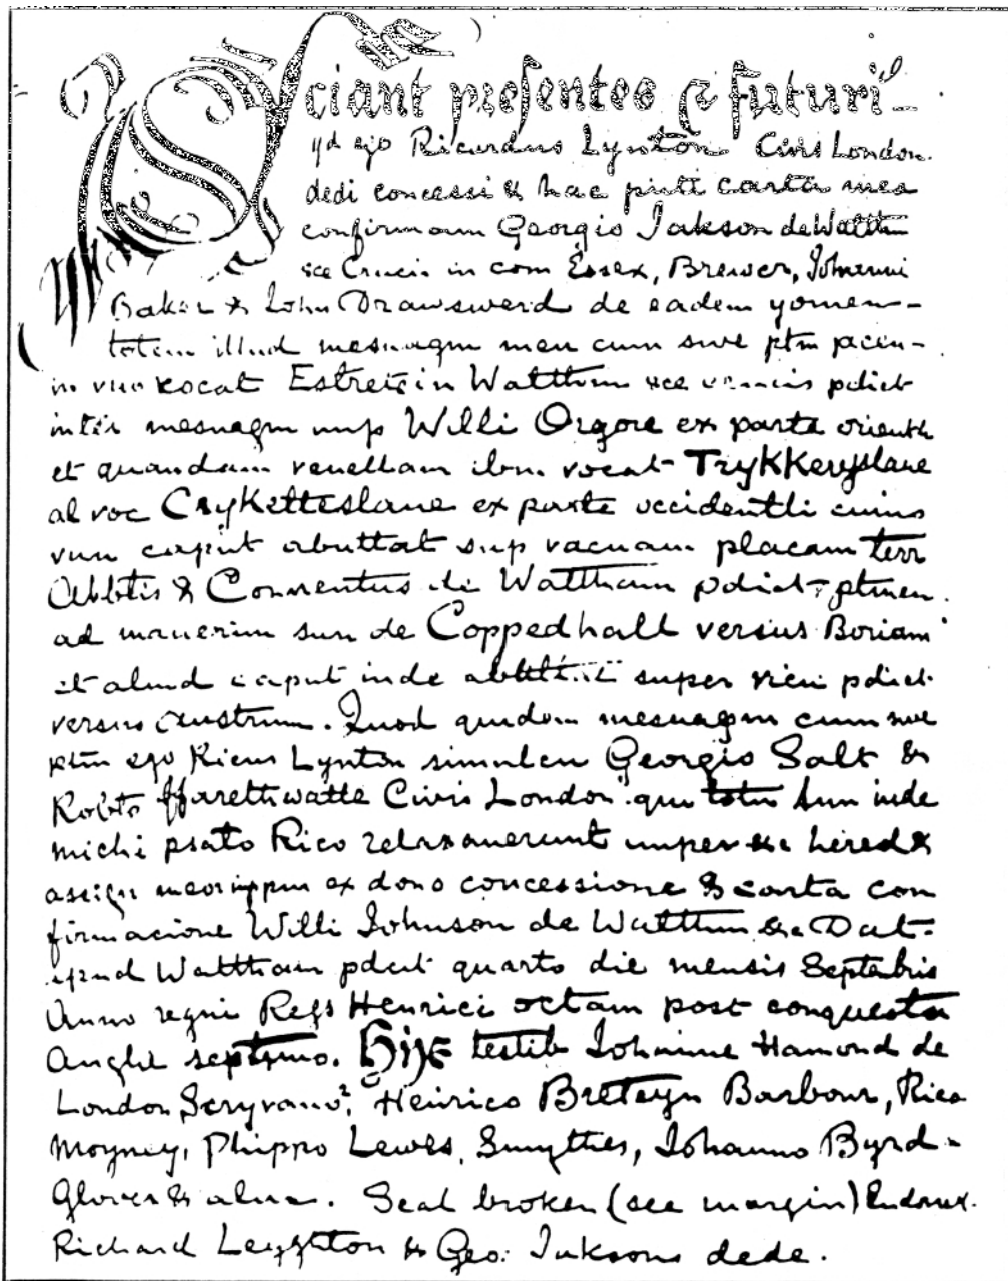 Sciant presentes & futuri
qd ego Ricardus Lynton Civis London.
dedi concessi & hac psnti carta mea
confirmam Georgio Jakson de Walthm
sce Crucis in com Essex, Brewer, Johanni
Baker & John Drawswerd de eadem yomen-
totem illud mesuagm meu cum sive ptm
in vico vocat Estrete in Walthm sce crucis pdict
inter mesuagm nup Willi Orgore ex parte orienth
et quandam venellam ibm vocat Trykkeryslane
al voc Cryketteslane ex parte occidentli cuius
vnu caput abuttat sup vacuam placam terr
Abbtis & Conventus de Waltham pdict ptinen.
ad manerim suu de Coppedhall versus Boriam
et aliud caput inde super vicu pdict
versus Austrum. Quod quidm mesuagm cum sive
ptm ego Ricus Lynton simulcu Georgio Salt &
Robto ffarethwatte Civis London qui totu suu inde
michi psato Rico relaxauerunt nuper hered &
assign ex dono concessione & carta con
firmacione Willi Johnson de Walthm &c Dat-
apud Waltham pdict quarto die mensis Septebris
Anno regni Regs Henrici octam post conquestu
Anglie septimo. Hijs testib Johanne Hamond de
London Scryvano², Henrico Breteyn Barbour, Rico
Moyney, Phippo Lewes, Smythes, Johanno Byrd-
Glover & aliis. Seal broken (see margin) Endorsed.
Richard Leyghton & Geo: Juksons dede.